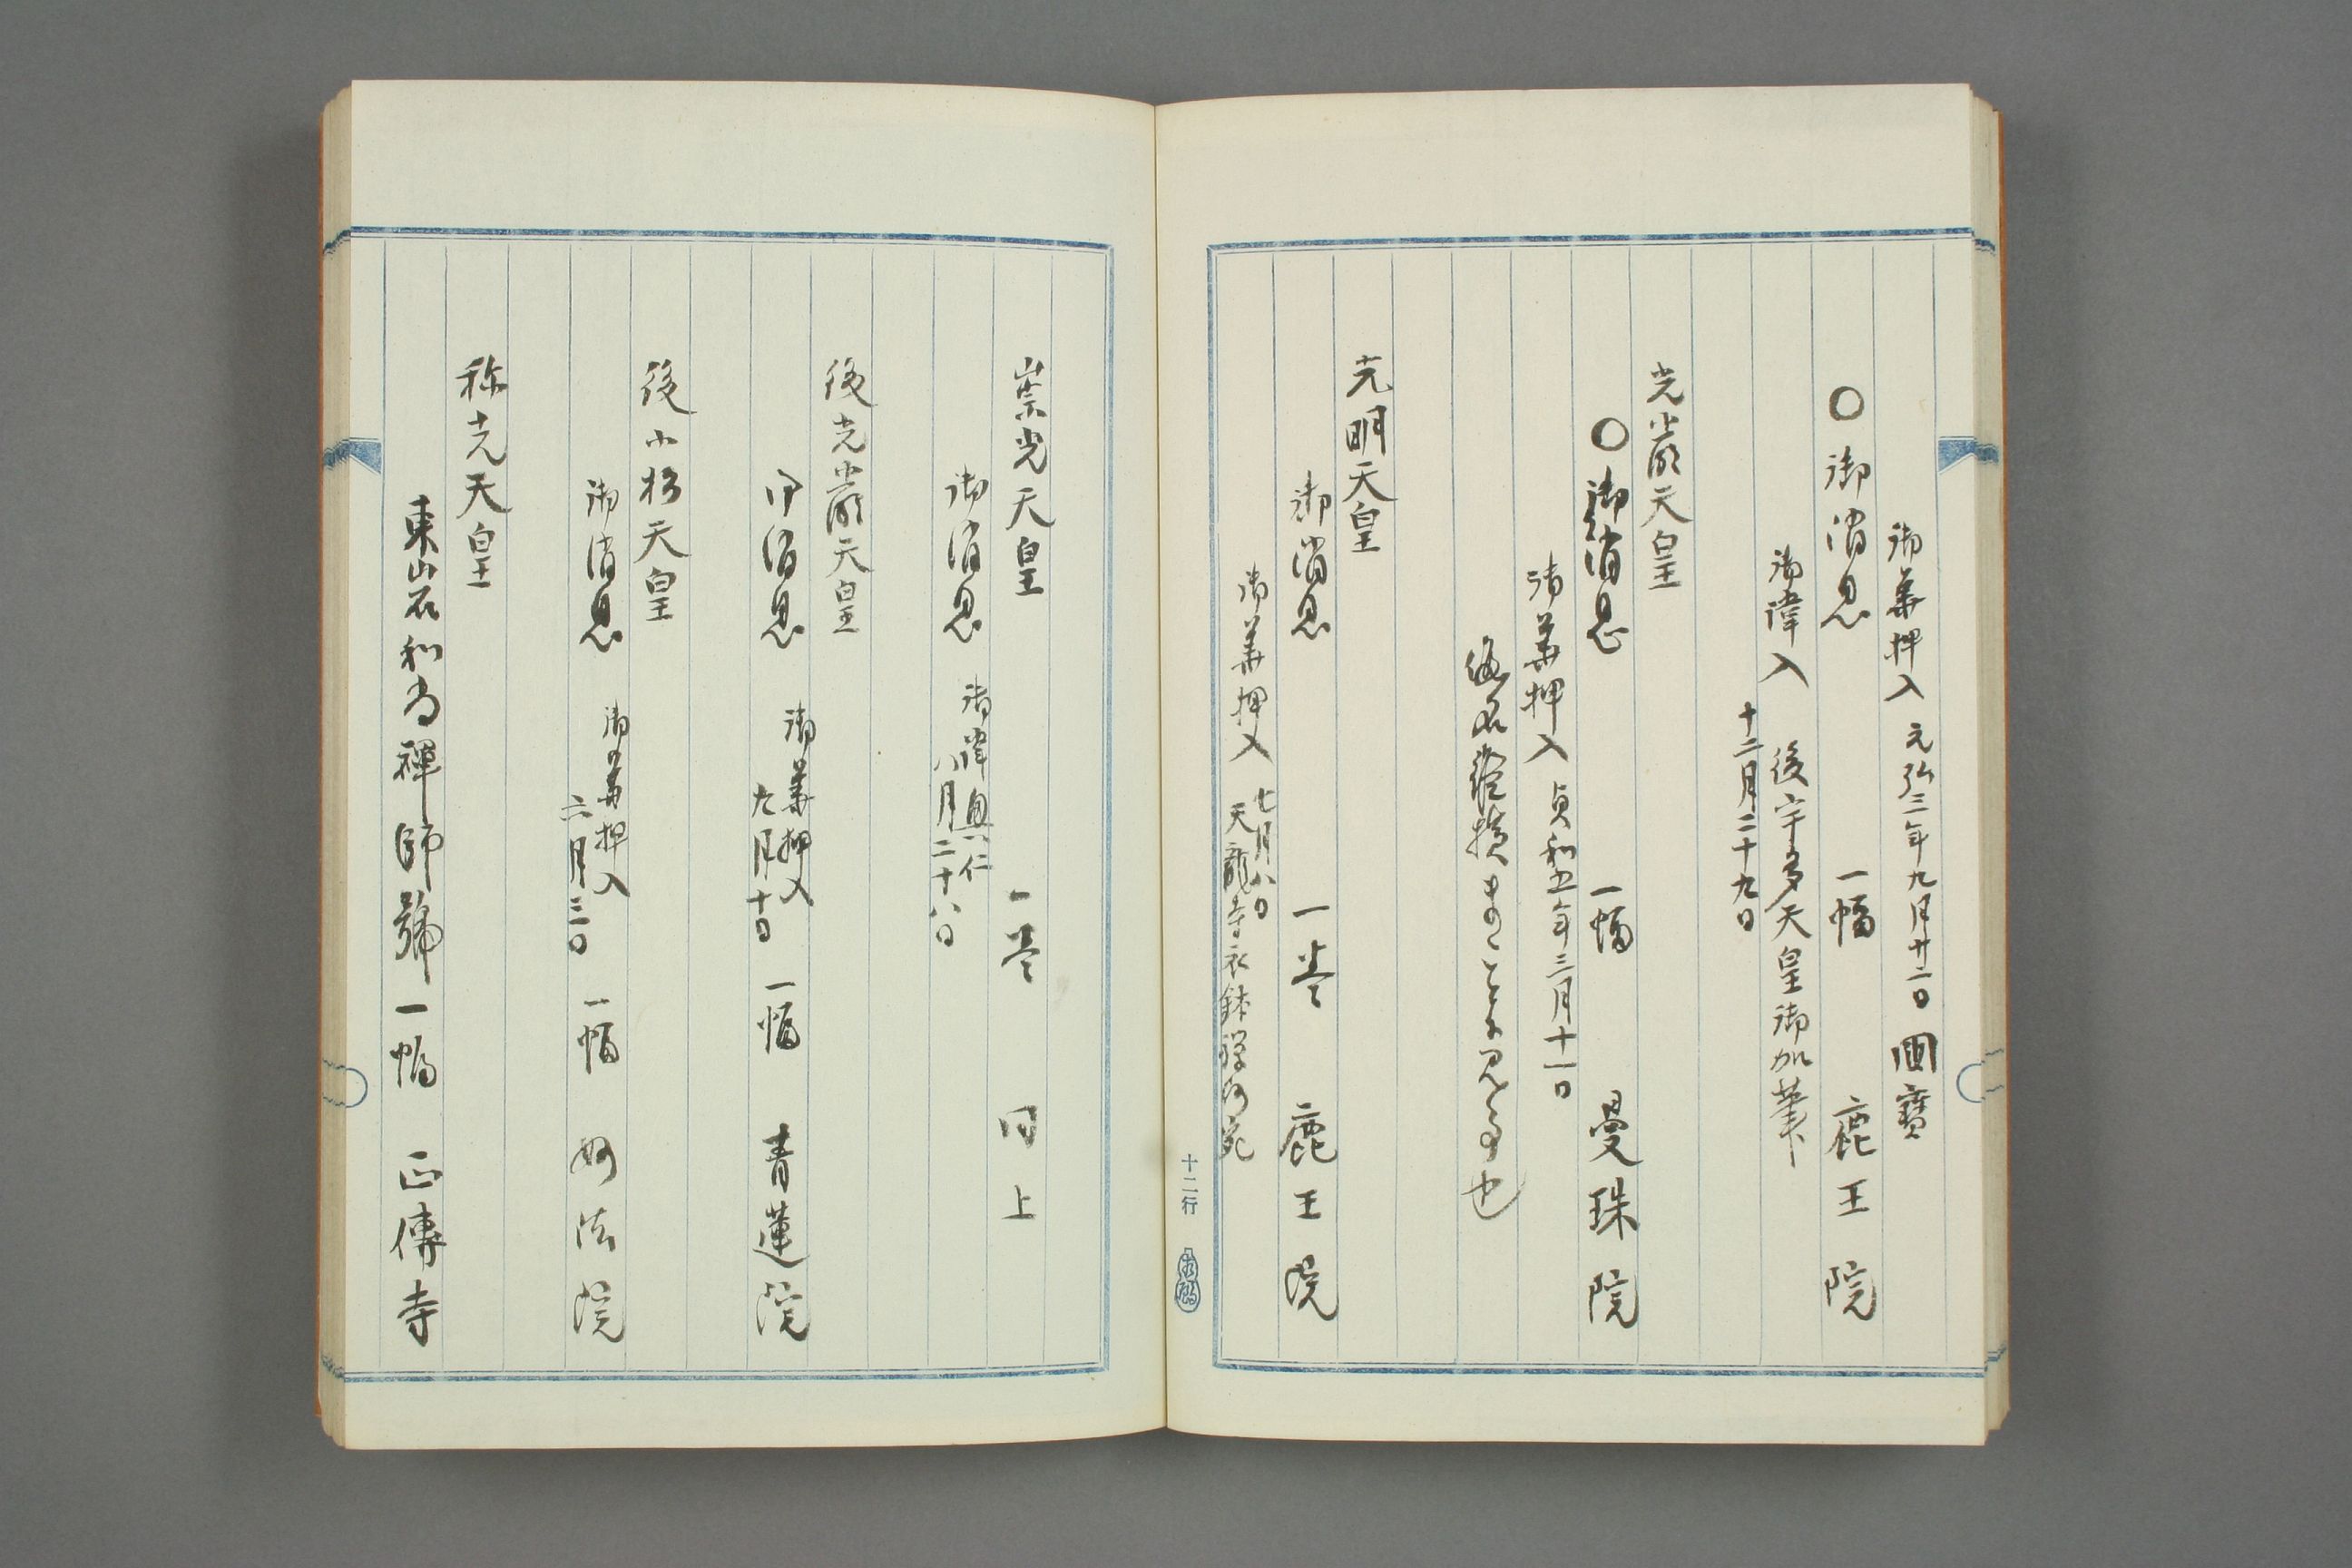 御華押入 元弘三年九月廿二日 國寶
〇御消息 一幅 鹿王院
御諱入 後宇多天皇御加筆
十二月二十九日
光嚴天皇
〇御消息 一幅 曼珠院
御華押入 貞和五年三月十一日
也
光明天皇
御消息 一巻 鹿王院
御華押入 七月八日
天龍寺衣鉢禅師宛
十二行
崇光天皇
一巻 同上
御消息 御諱興仁
八月二十八日
後光嚴天皇
御消息 御華押入 一幅 青蓮院
九月十日
後小松天皇
御消息 御華押入 一幅 妙法院
二月三日
称光天皇
東山石和尚禅師號 一幅 正傳寺